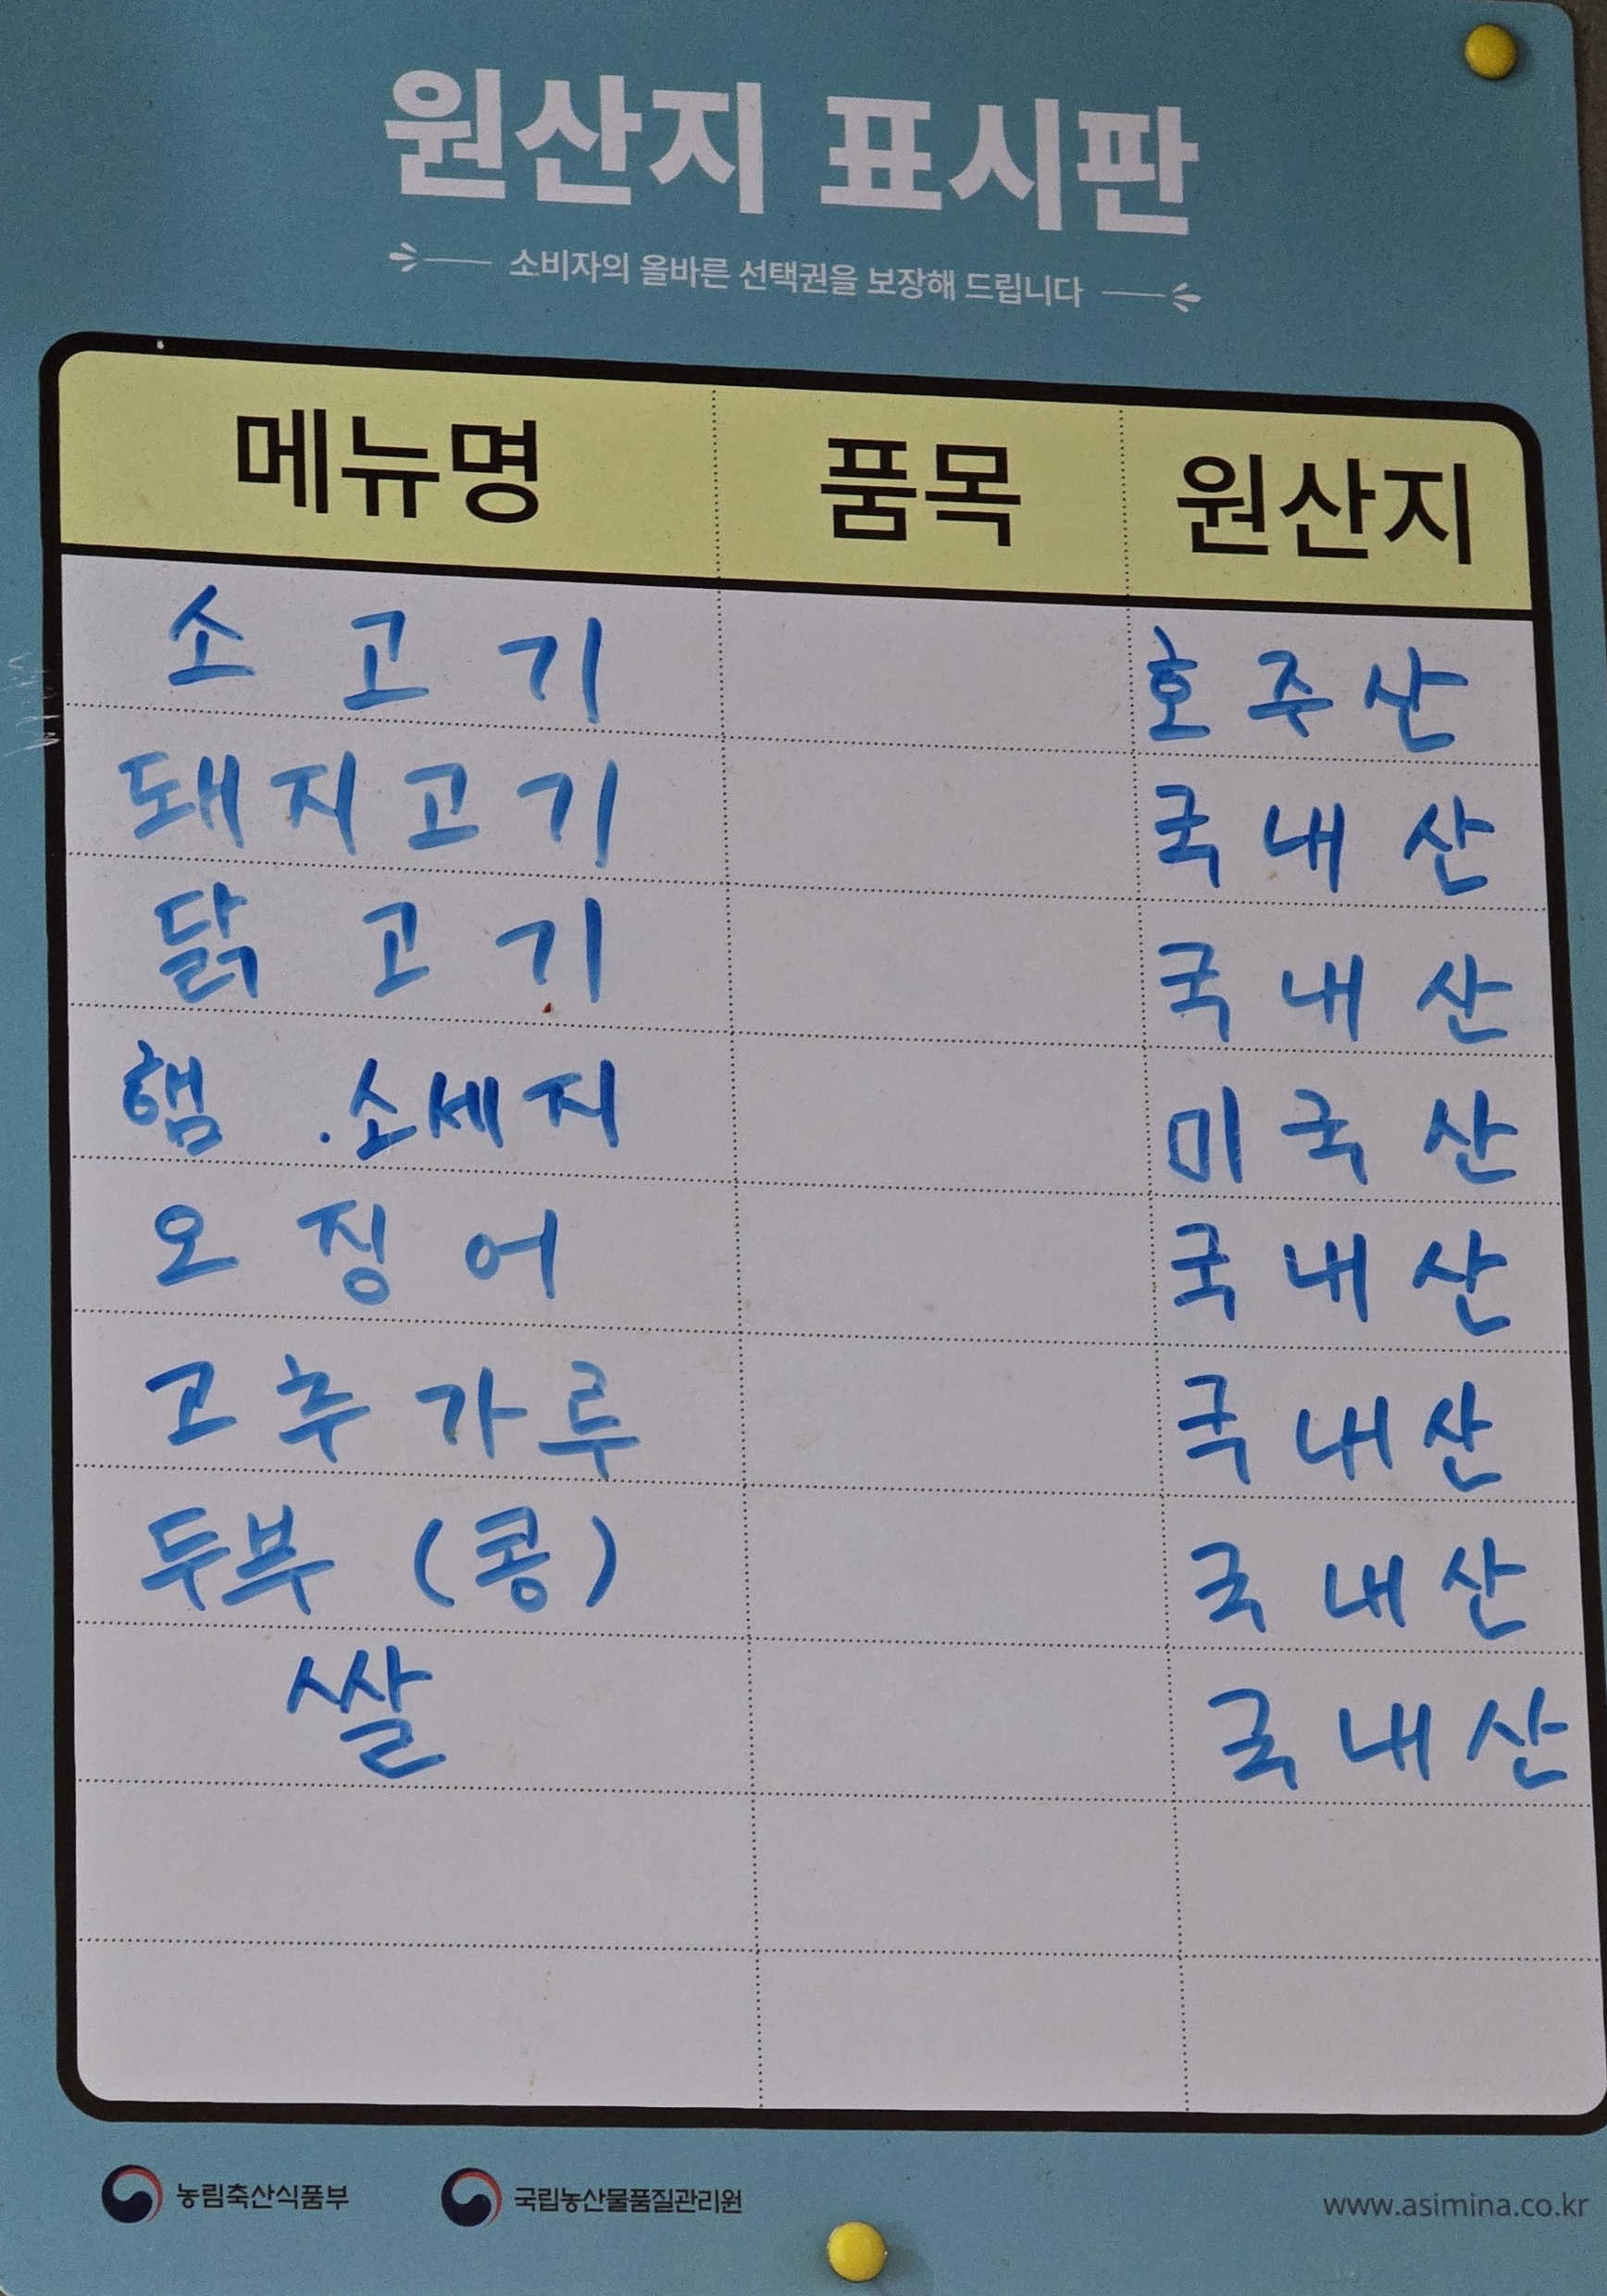 원산지 표시판
소비자의 올바른 선택권을 보장해 드립니다
메뉴명 품목 원산지
소고기 호주산
돼지고기 국내산
닭고기 국내산
햄 . 소세지 미국산
오징어 국내산
고추가루 국내산
두부 (콩) 국내산
쌀 국내산
농림축산식품부 국립농산물품질관리원 www.asimina.co.kr